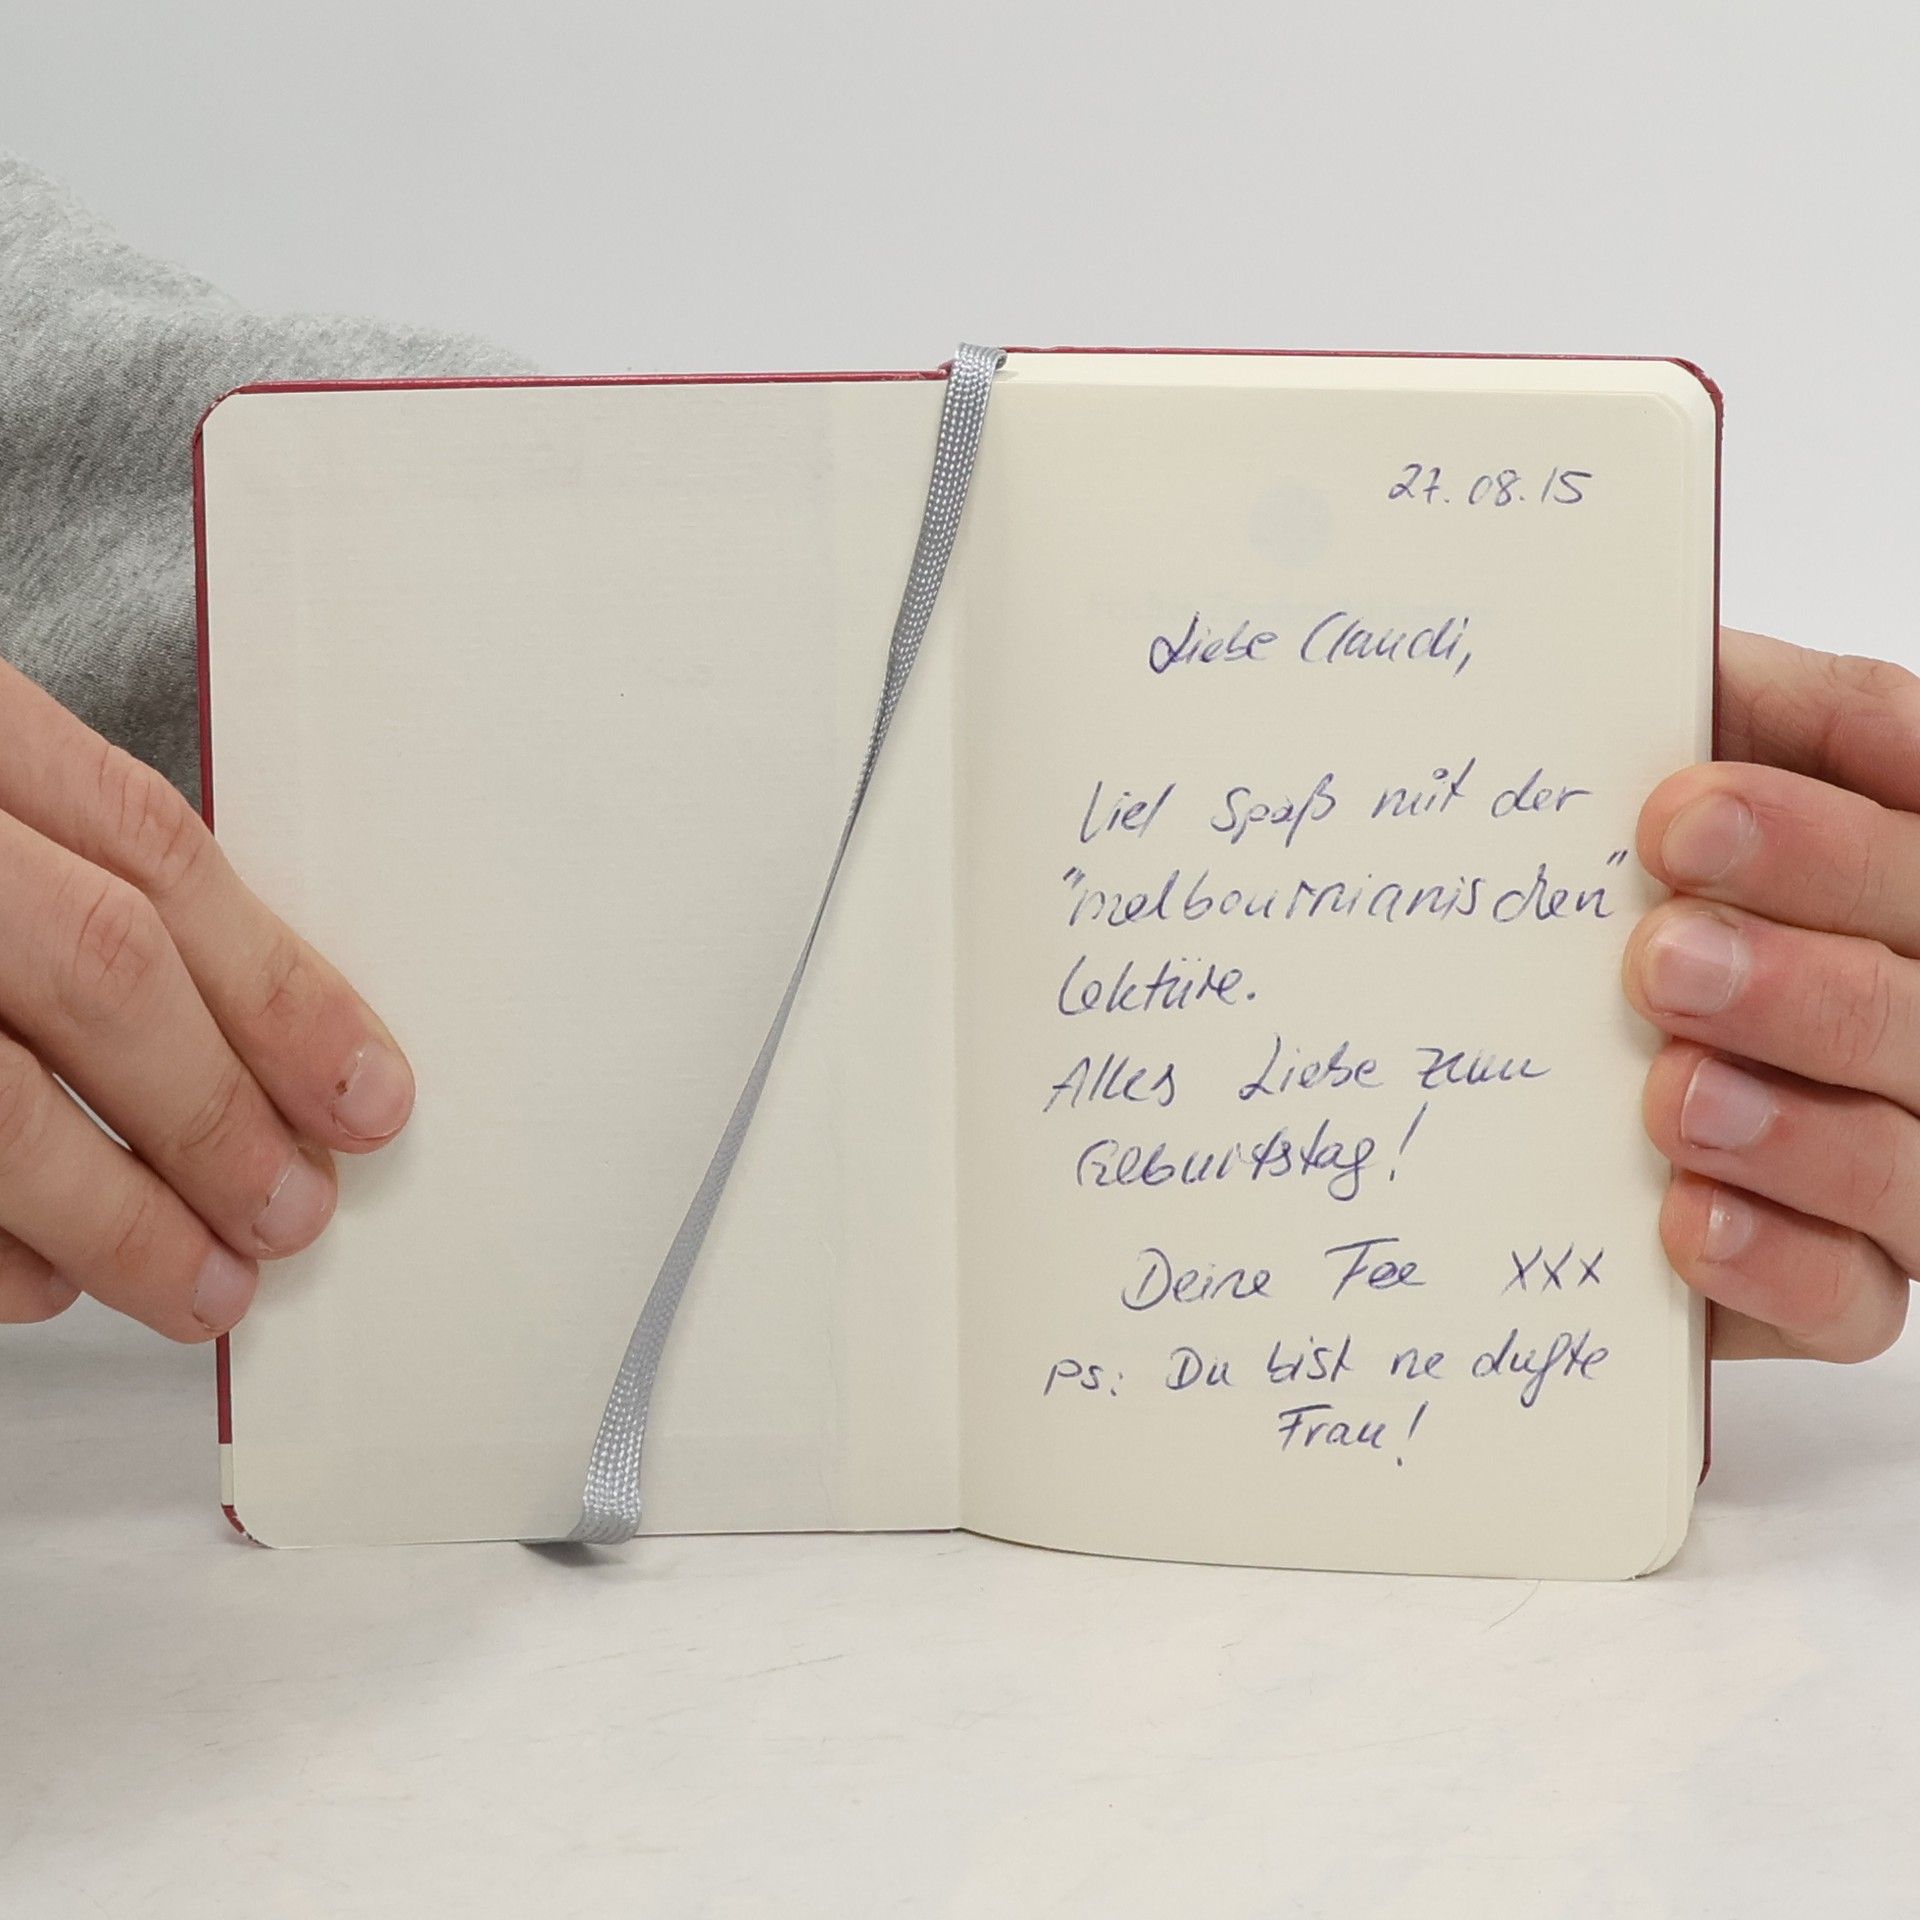 27.08.15
Liebe Claudi,
Viel Spaß mit der
"melbournianischen"
Lektüre.
Alles Liebe zum
Geburtstag!
Deine Fee xxx
PS: Du bist ne dufte
Frau!